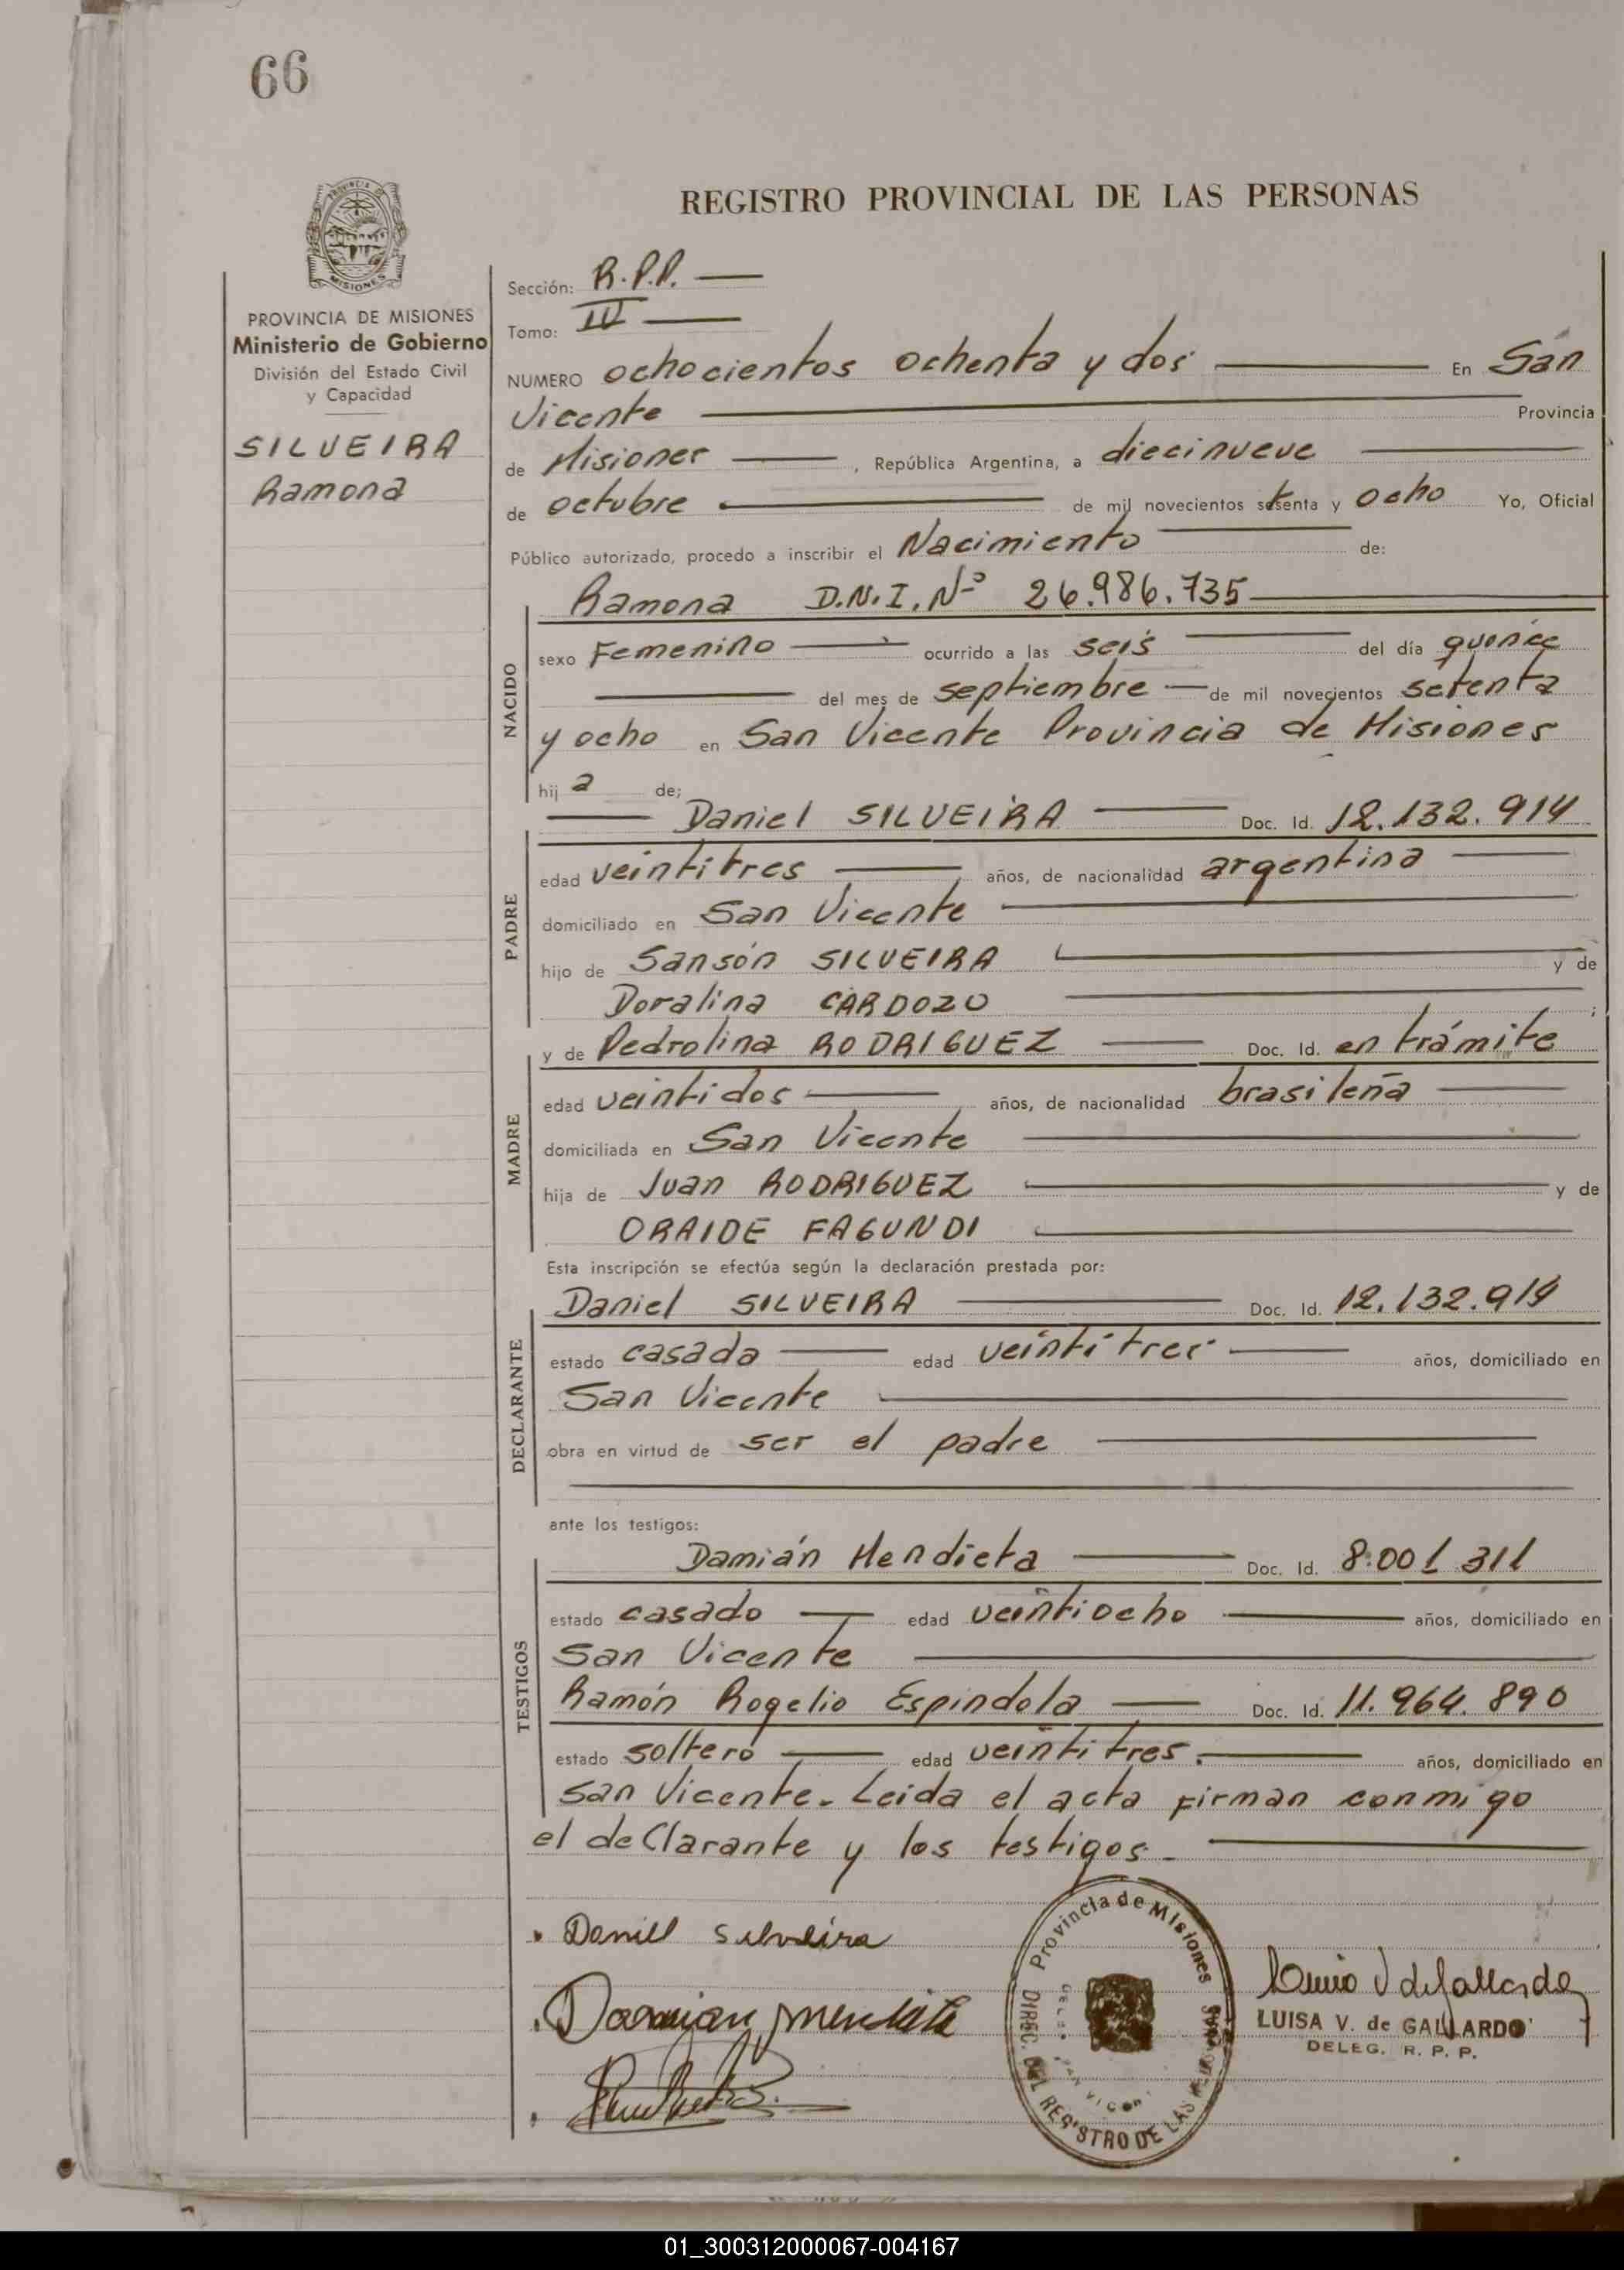 66
REGISTRO PROVINCIAL DE LAS PERSONAS
MISIONES
PROVINCIA DE MISIONES
Ministerio de Gobierno
División del Estado Civil
y Capacidad
SILVEIRA
Ramona
Sección: R.P.P.
Tomo: IV
NUMERO ochocientos ochenta y dos En San
Vicente Provincia
de Misiones, República Argentina, a diecinueve
de octubre de mil novecientos setenta y ocho Yo, Oficial
Público autorizado, procedo a inscribir el Nacimiento de:
Ramona D.N.I. Nº 26.986.735
NACIDO
sexo Femenino ocurrido a las seis del día quince
del mes de septiembre de mil novecientos setenta
y ocho en San Vicente Provincia de Misiones
hij a de;
Daniel SILVEIRA Doc. Id. 12.132.914
PADRE
edad veintitres años, de nacionalidad argentina
domiciliado en San Vicente
hijo de Sansón SILVEIRA y de
Doralina CARDOZO ;
y de Pedrolina RODRIGUEZ Doc. Id. en trámite
MADRE
edad veintidos años, de nacionalidad brasileña
domiciliada en San Vicente
hija de Juan RODRIGUEZ y de
ORAIDE FAGUNDI
Esta inscripción se efectúa según la declaración prestada por:
Daniel SILVEIRA Doc. Id. 12.132.914
DECLARANTE
estado casado edad veintitres años, domiciliado en
San Vicente
obra en virtud de ser el padre
ante los testigos:
Damián Mendieta Doc. Id. 8.001.311
TESTIGOS
estado casado edad veintiocho años, domiciliado en
San Vicente
Ramón Rogelio Espindola Doc. Id. 11.964.890
estado soltero edad veintitres. años, domiciliado en
San Vicente. Leida el acta firman conmigo
el declarante y los testigos.
Daniel Silveira
Damian Mendieta
Provincia de Misiones
DIREC. DEL REGISTRO DE LAS
LUISA V. de GALLARDO
DELEG. R. P. P.
01_300312000067-004167